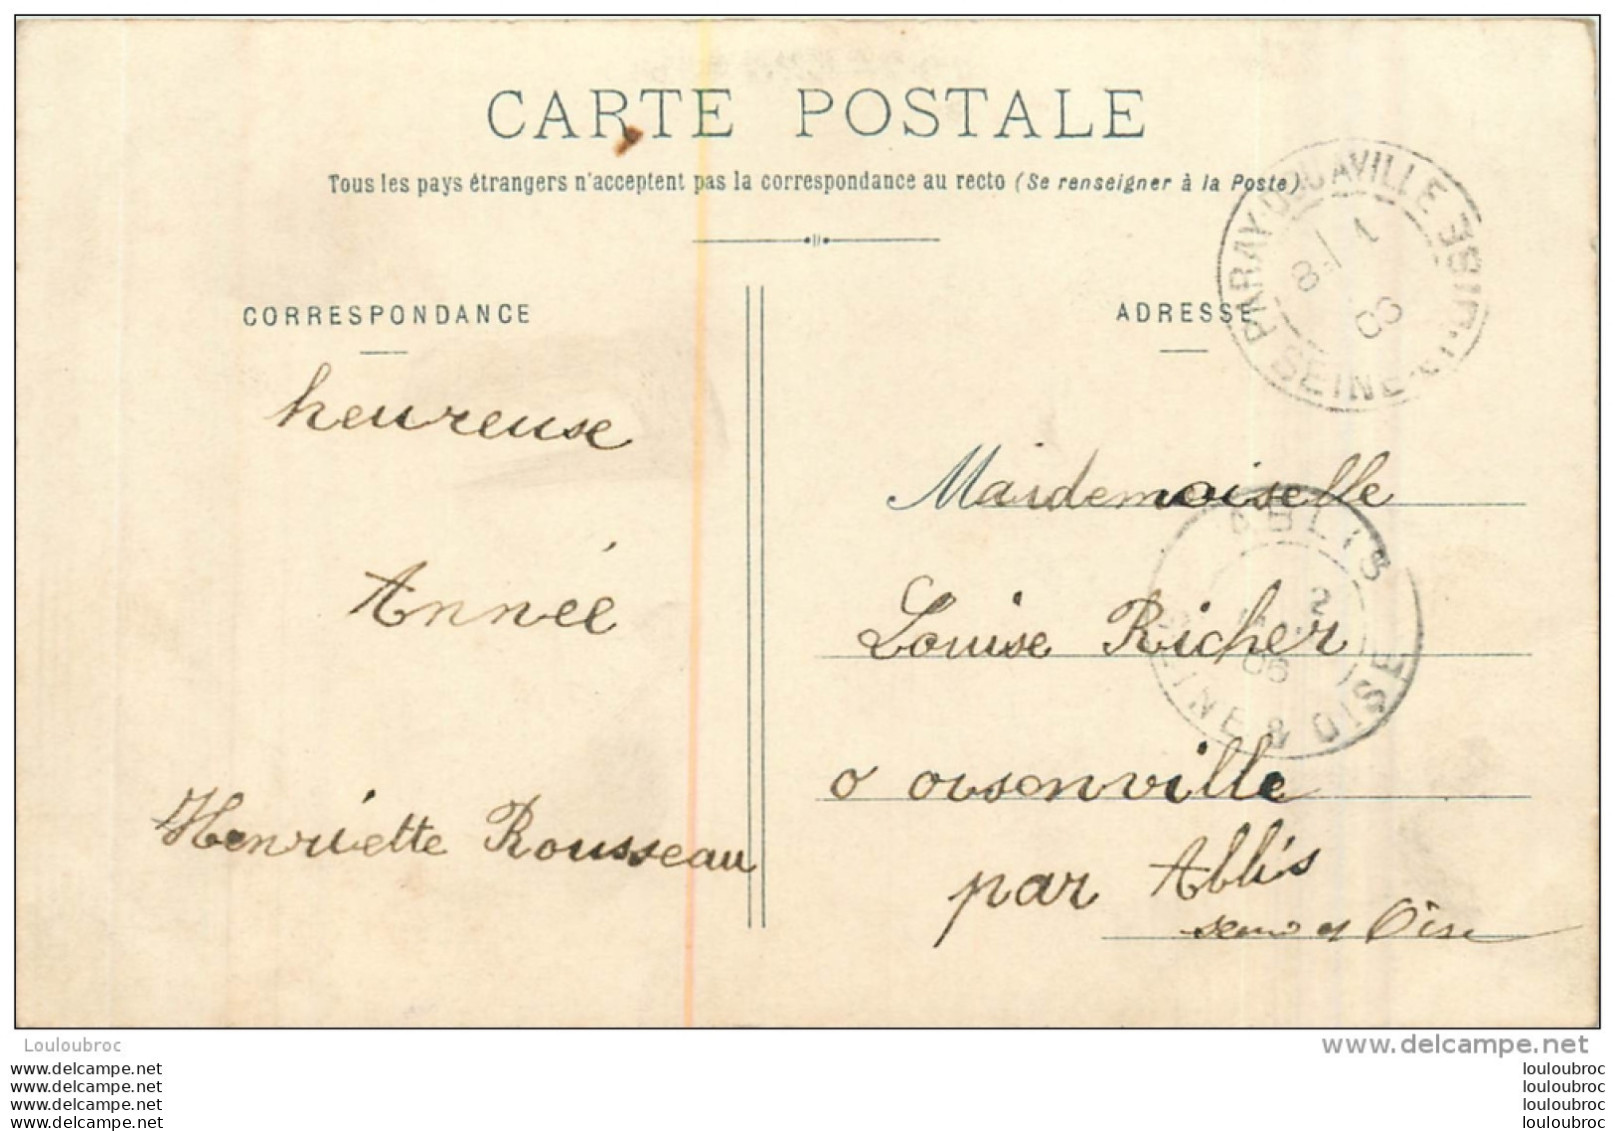 CARTE POSTALE
Tous les pays étrangers n'acceptent pas la correspondance au recto (Se renseigner à la Poste)
PARAY-DOUAVILLE
8-1 1
06
SEINE-ET-OISE
CORRESPONDANCE
ADRESSE
heureuse
Année
Henriette Rousseau
Maidemoiselle
ABLIS
2
06
SEINE & OISE
Louise Richer
o orsonville
par Ablis
seine et Oise
Louloubroc
www.delcampe.net
www.delcampe.net
www.delcampe.net
www.delcampe.net
www.delcampe.net
louloubroc
louloubroc
louloubroc
louloubroc